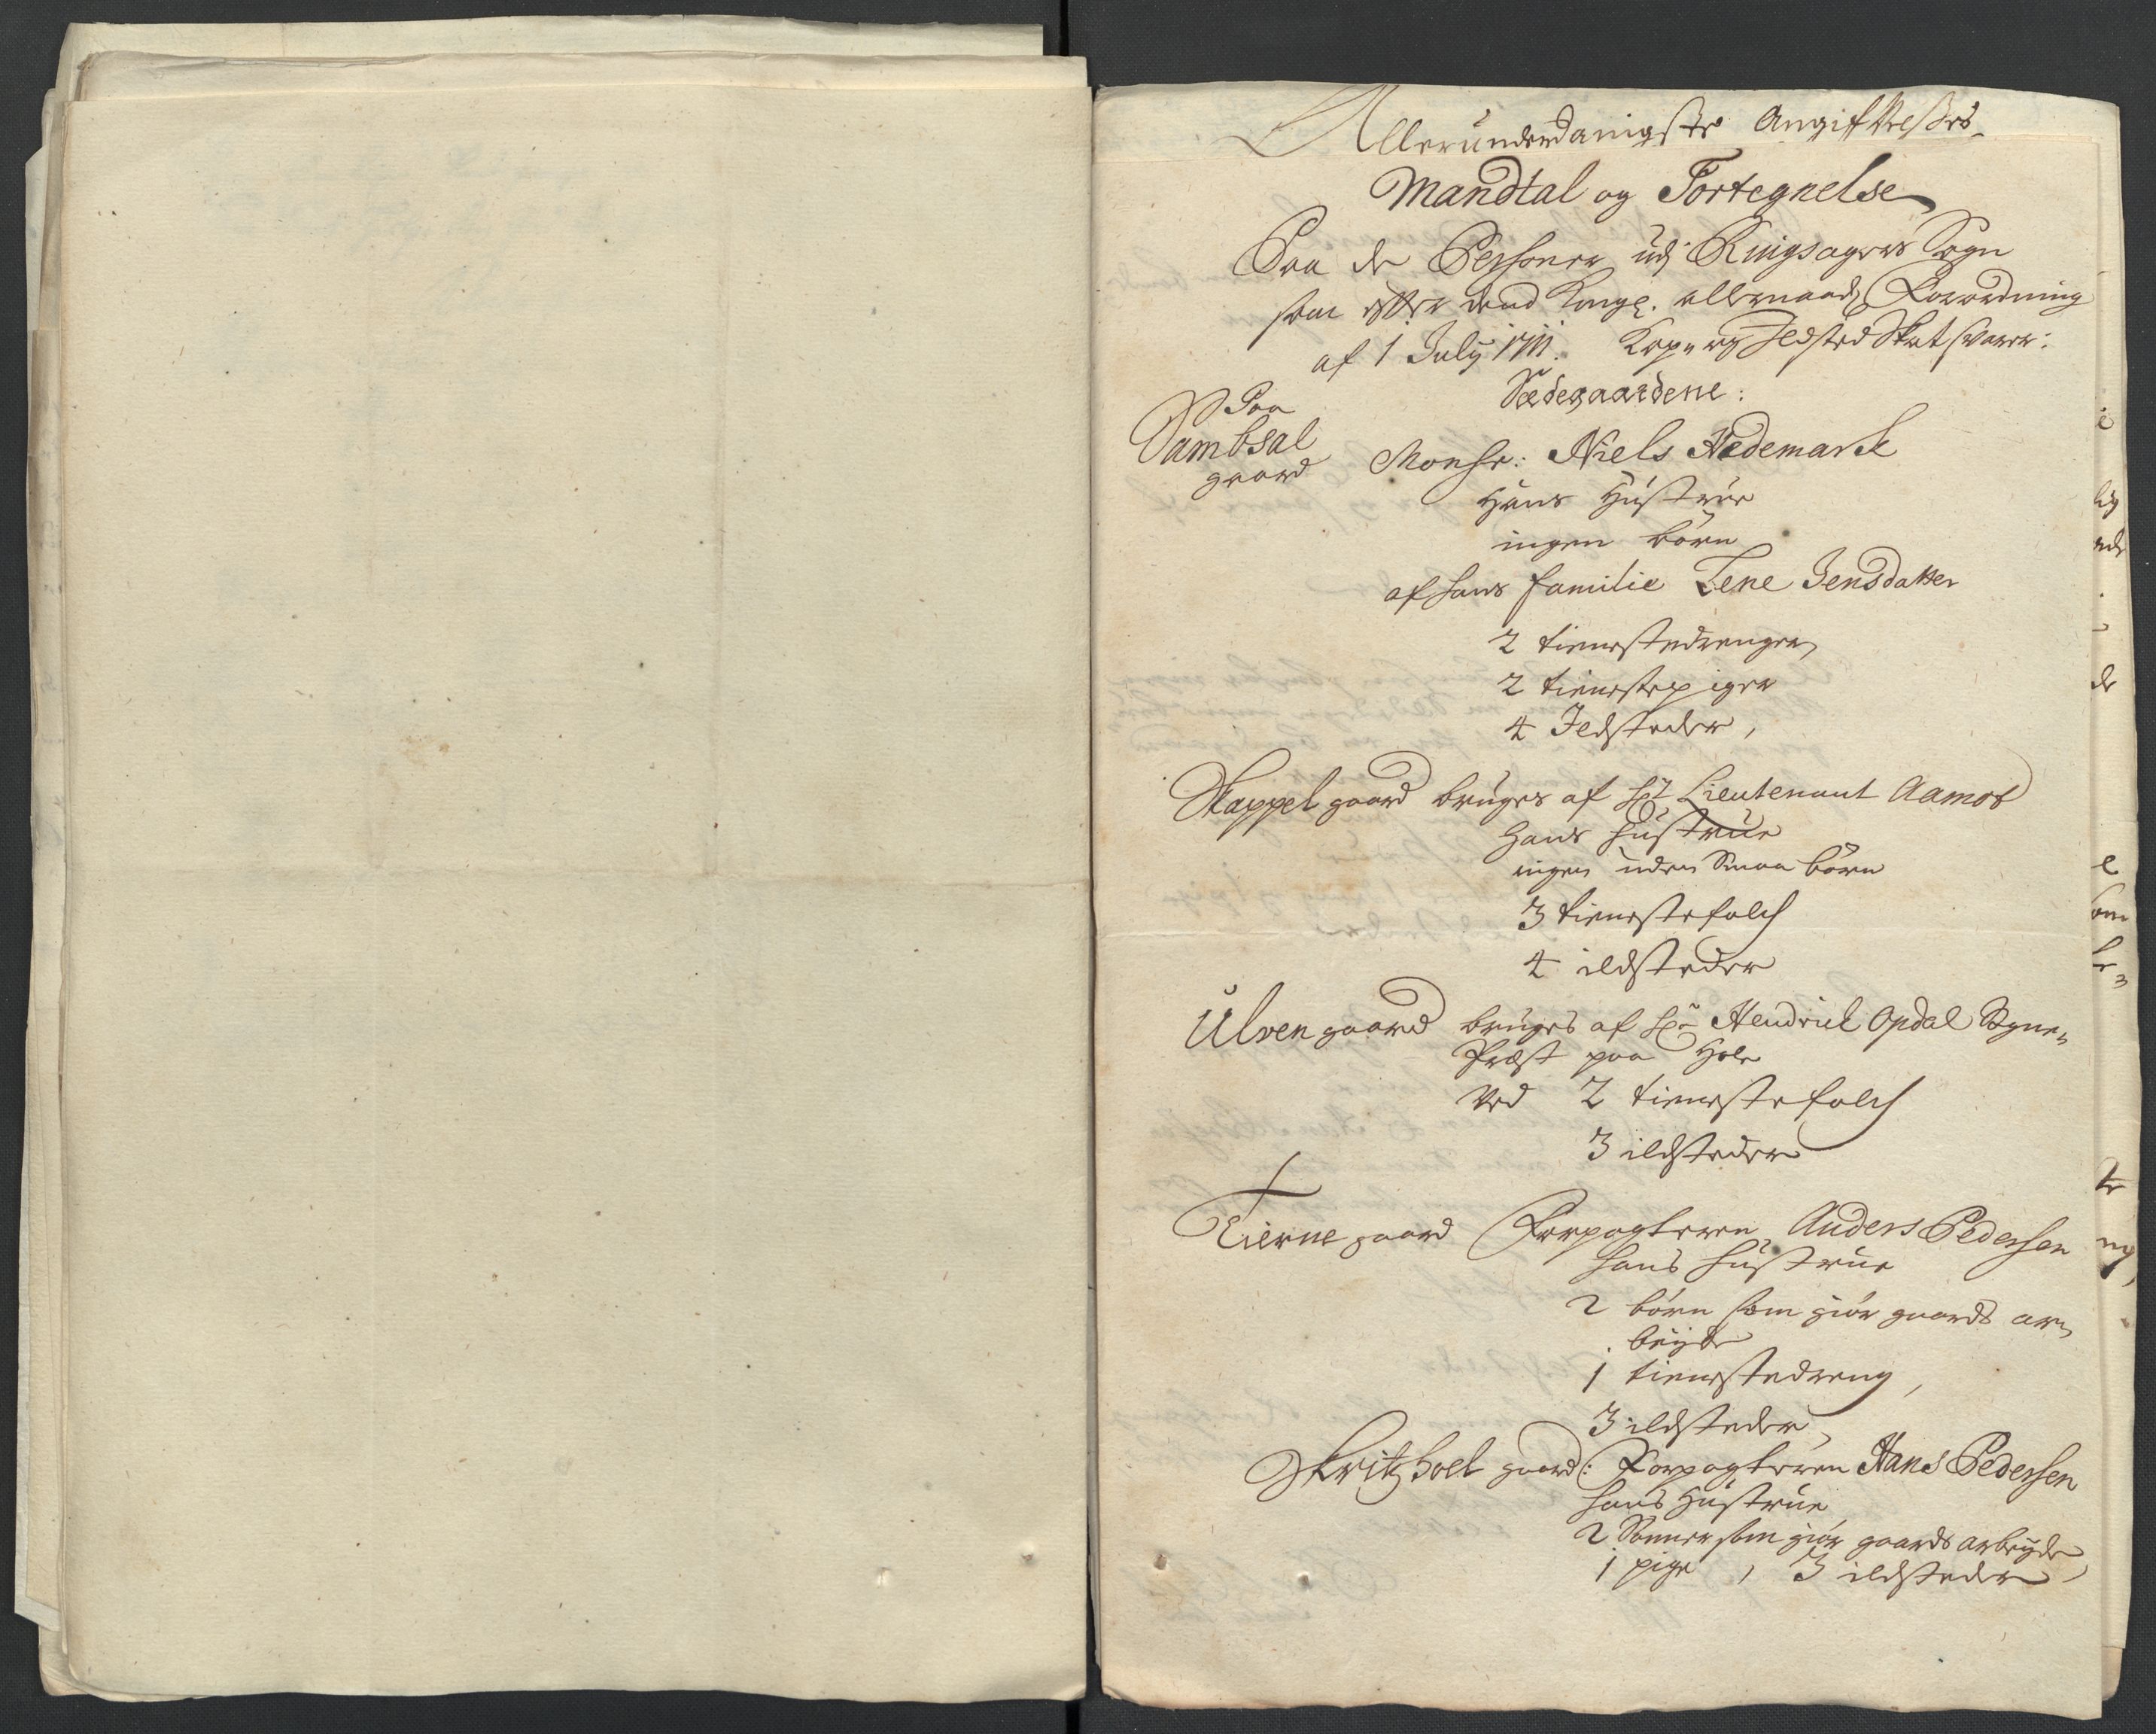 Allerunderdanigste Angiffvelses-
Mandtal og Fortegnelse
Paa de Persohner udj Ringsagers Sogn
som effter dend Kongl. allernaad. Forordning
af 1 July 1711. Kop- og Ildsted Skat svarer:
Sædegaardene:
Paa
Sambsal
gaard
Monsr: Niels Hedemark
Hans Hustrue
ingen börn
af hans familie Lene Jensdatter
2 tienestedrenger
2 tienestepiger
4 Ildsteder,
Skappel gaard bruges af Hr Lieutenant Aamot
Hans Hustrue
ingen uden Smaa börn
3 tienestefolch
4 ildsteder
Ulven gaard bruges af Hr Hendrich Opdal Sogne-
Præst paa Hole
Ved 2 tienestefolch
3 ildsteder
Tierne gaard Forpagteren Anders Pedersen
hans Hustrue
2 börn som giör gaards ar-
beyde
1 tienestedreng,
3 ildsteder,
Skritzhoel gaard: Forpagteren Hans Pedersen
hans Hustrue
2 Sönner som giör gaards arbeyde
1 pige, 3 ildsteder,